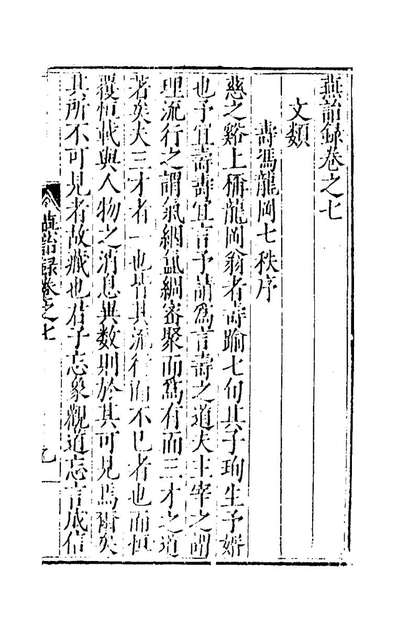 燕詒録卷之七
文類
壽馮龍岡七秩序
慈之谿上稱龍岡翁者壽踰七旬其子珣生予婿
也予宜壽壽宜言予請爲言壽之道夫主宰之謂
理流行之謂氣絪氲綢密聚而爲有而三才之道
著矣夫三才者一也皆其流行而不已者也而恒
覆恒載與人物之消息異數則於其可見焉爾矣
其所不可見者故藏也君子忘象觀道忘言成信
燕詒録卷之七